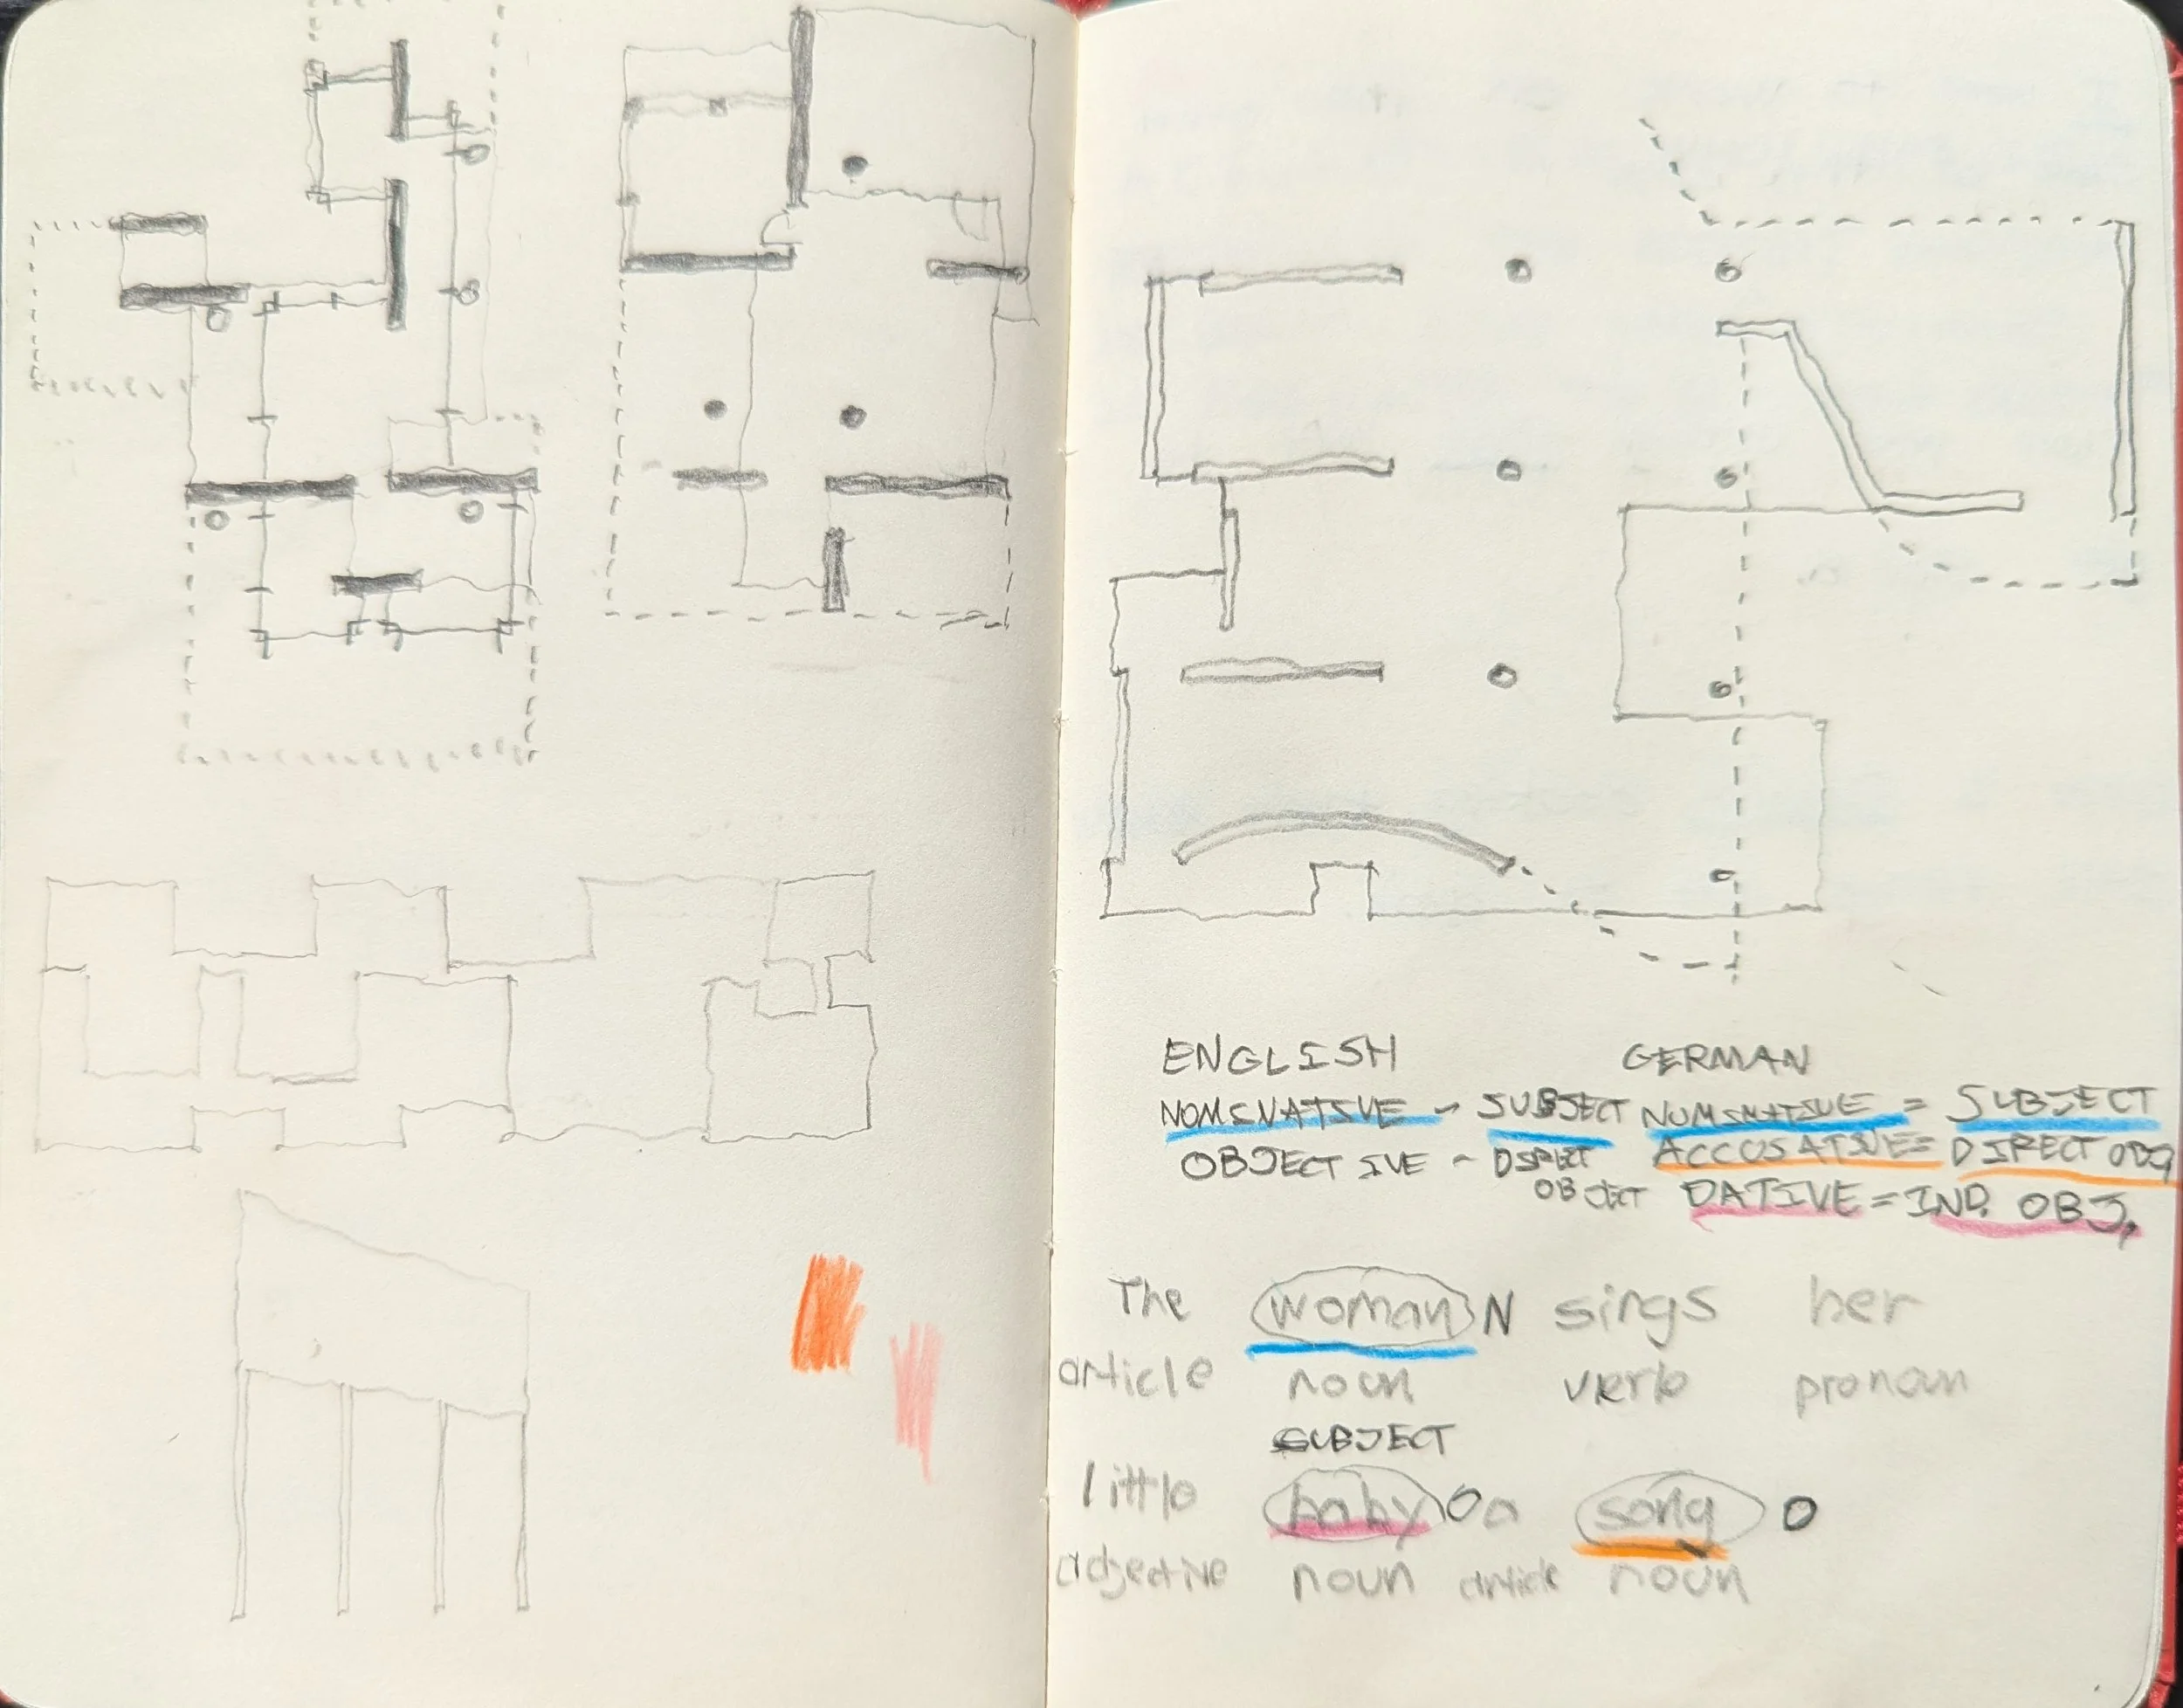 ENGLISH GERMAN
NOMINATIVE - SUBJECT NOMINATIVE = SUBJECT
OBJECTIVE - DIRECT ACCUSATIVE = DIRECT OBJ
OBJECT DATIVE = IND. OBJ.
The woman N sings her
article noun verb pronoun
SUBJECT
little baby O a song O
adjective noun article noun